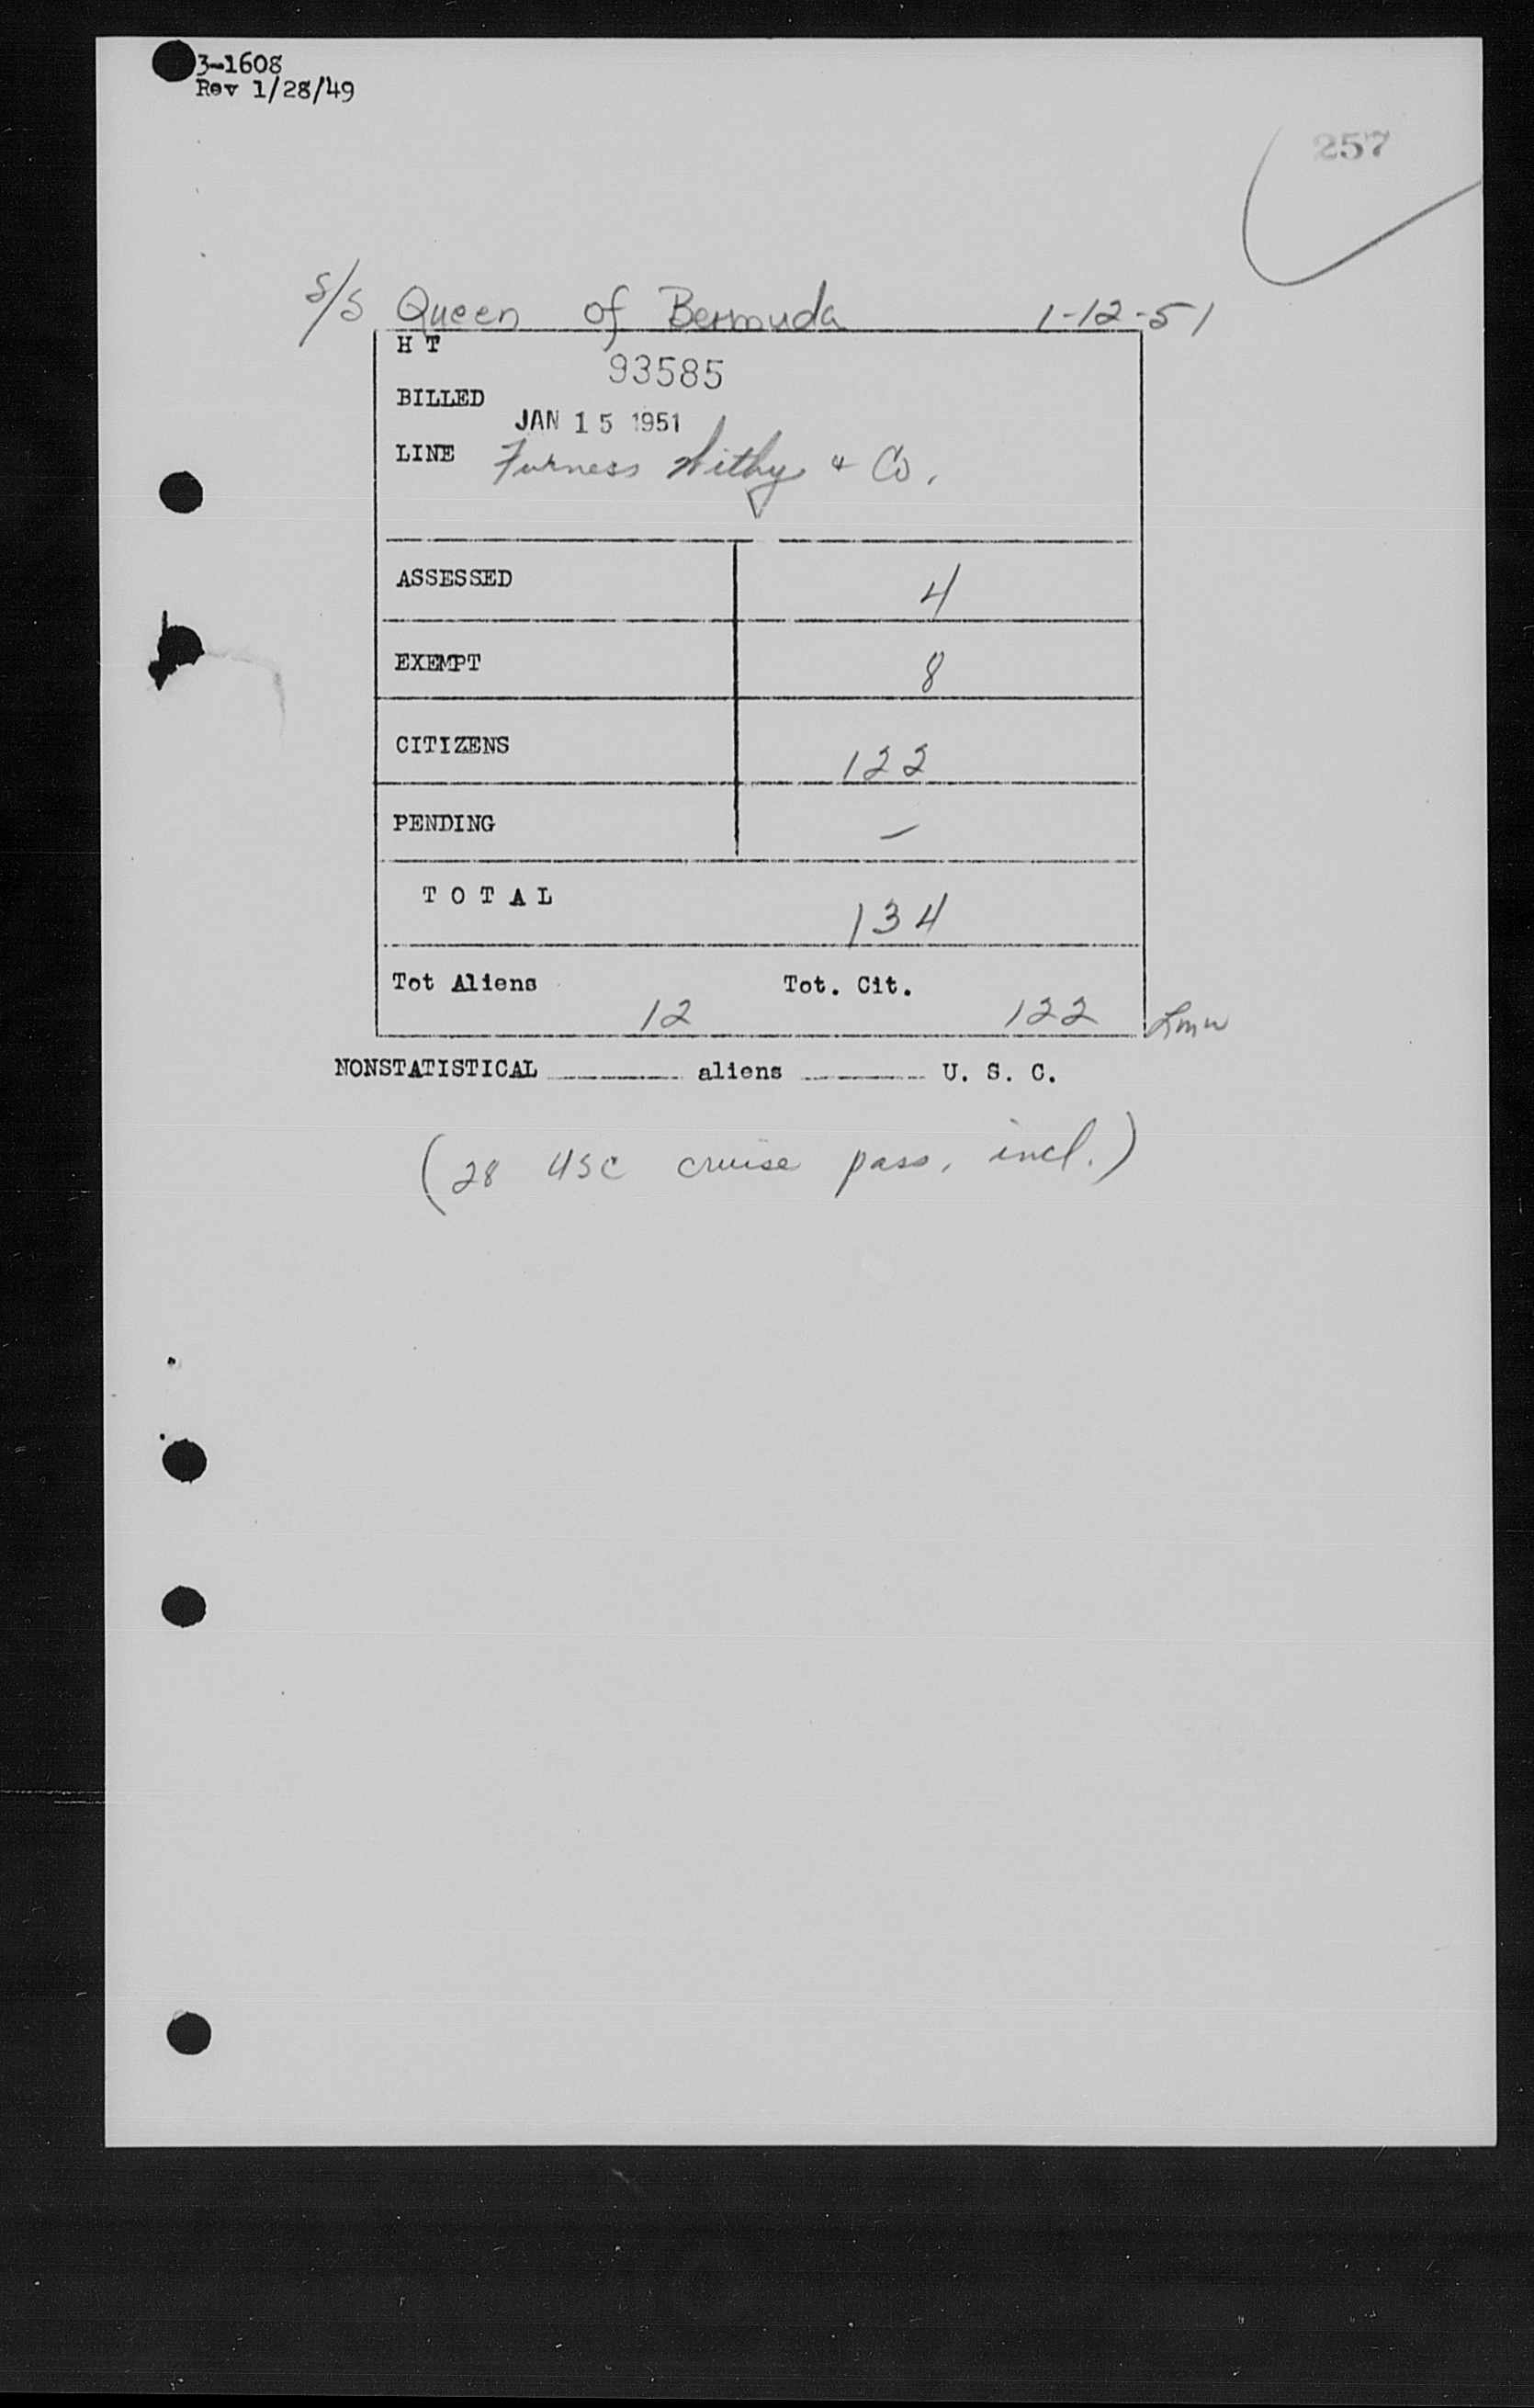 3-1608
Rev 1/28/49
257
S/S Queen of Bermuda 1-12-51
H T
93585
BILLED
JAN 15 1951
LINE Furness Withy & Co.
ASSESSED 4
EXEMPT 8
CITIZENS 122
PENDING —
TOTAL 134
Tot Aliens 12 Tot. Cit. 122 Lmw
NONSTATISTICAL ____ aliens ____ U. S. C.
(28 USC cruise pass, incl.)